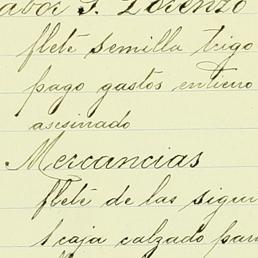 abor S. Lorenzo
flete semilla trigo
pago gastos entierro
asesinado
Mercancias
flete de las sigui
1 caja calzado para